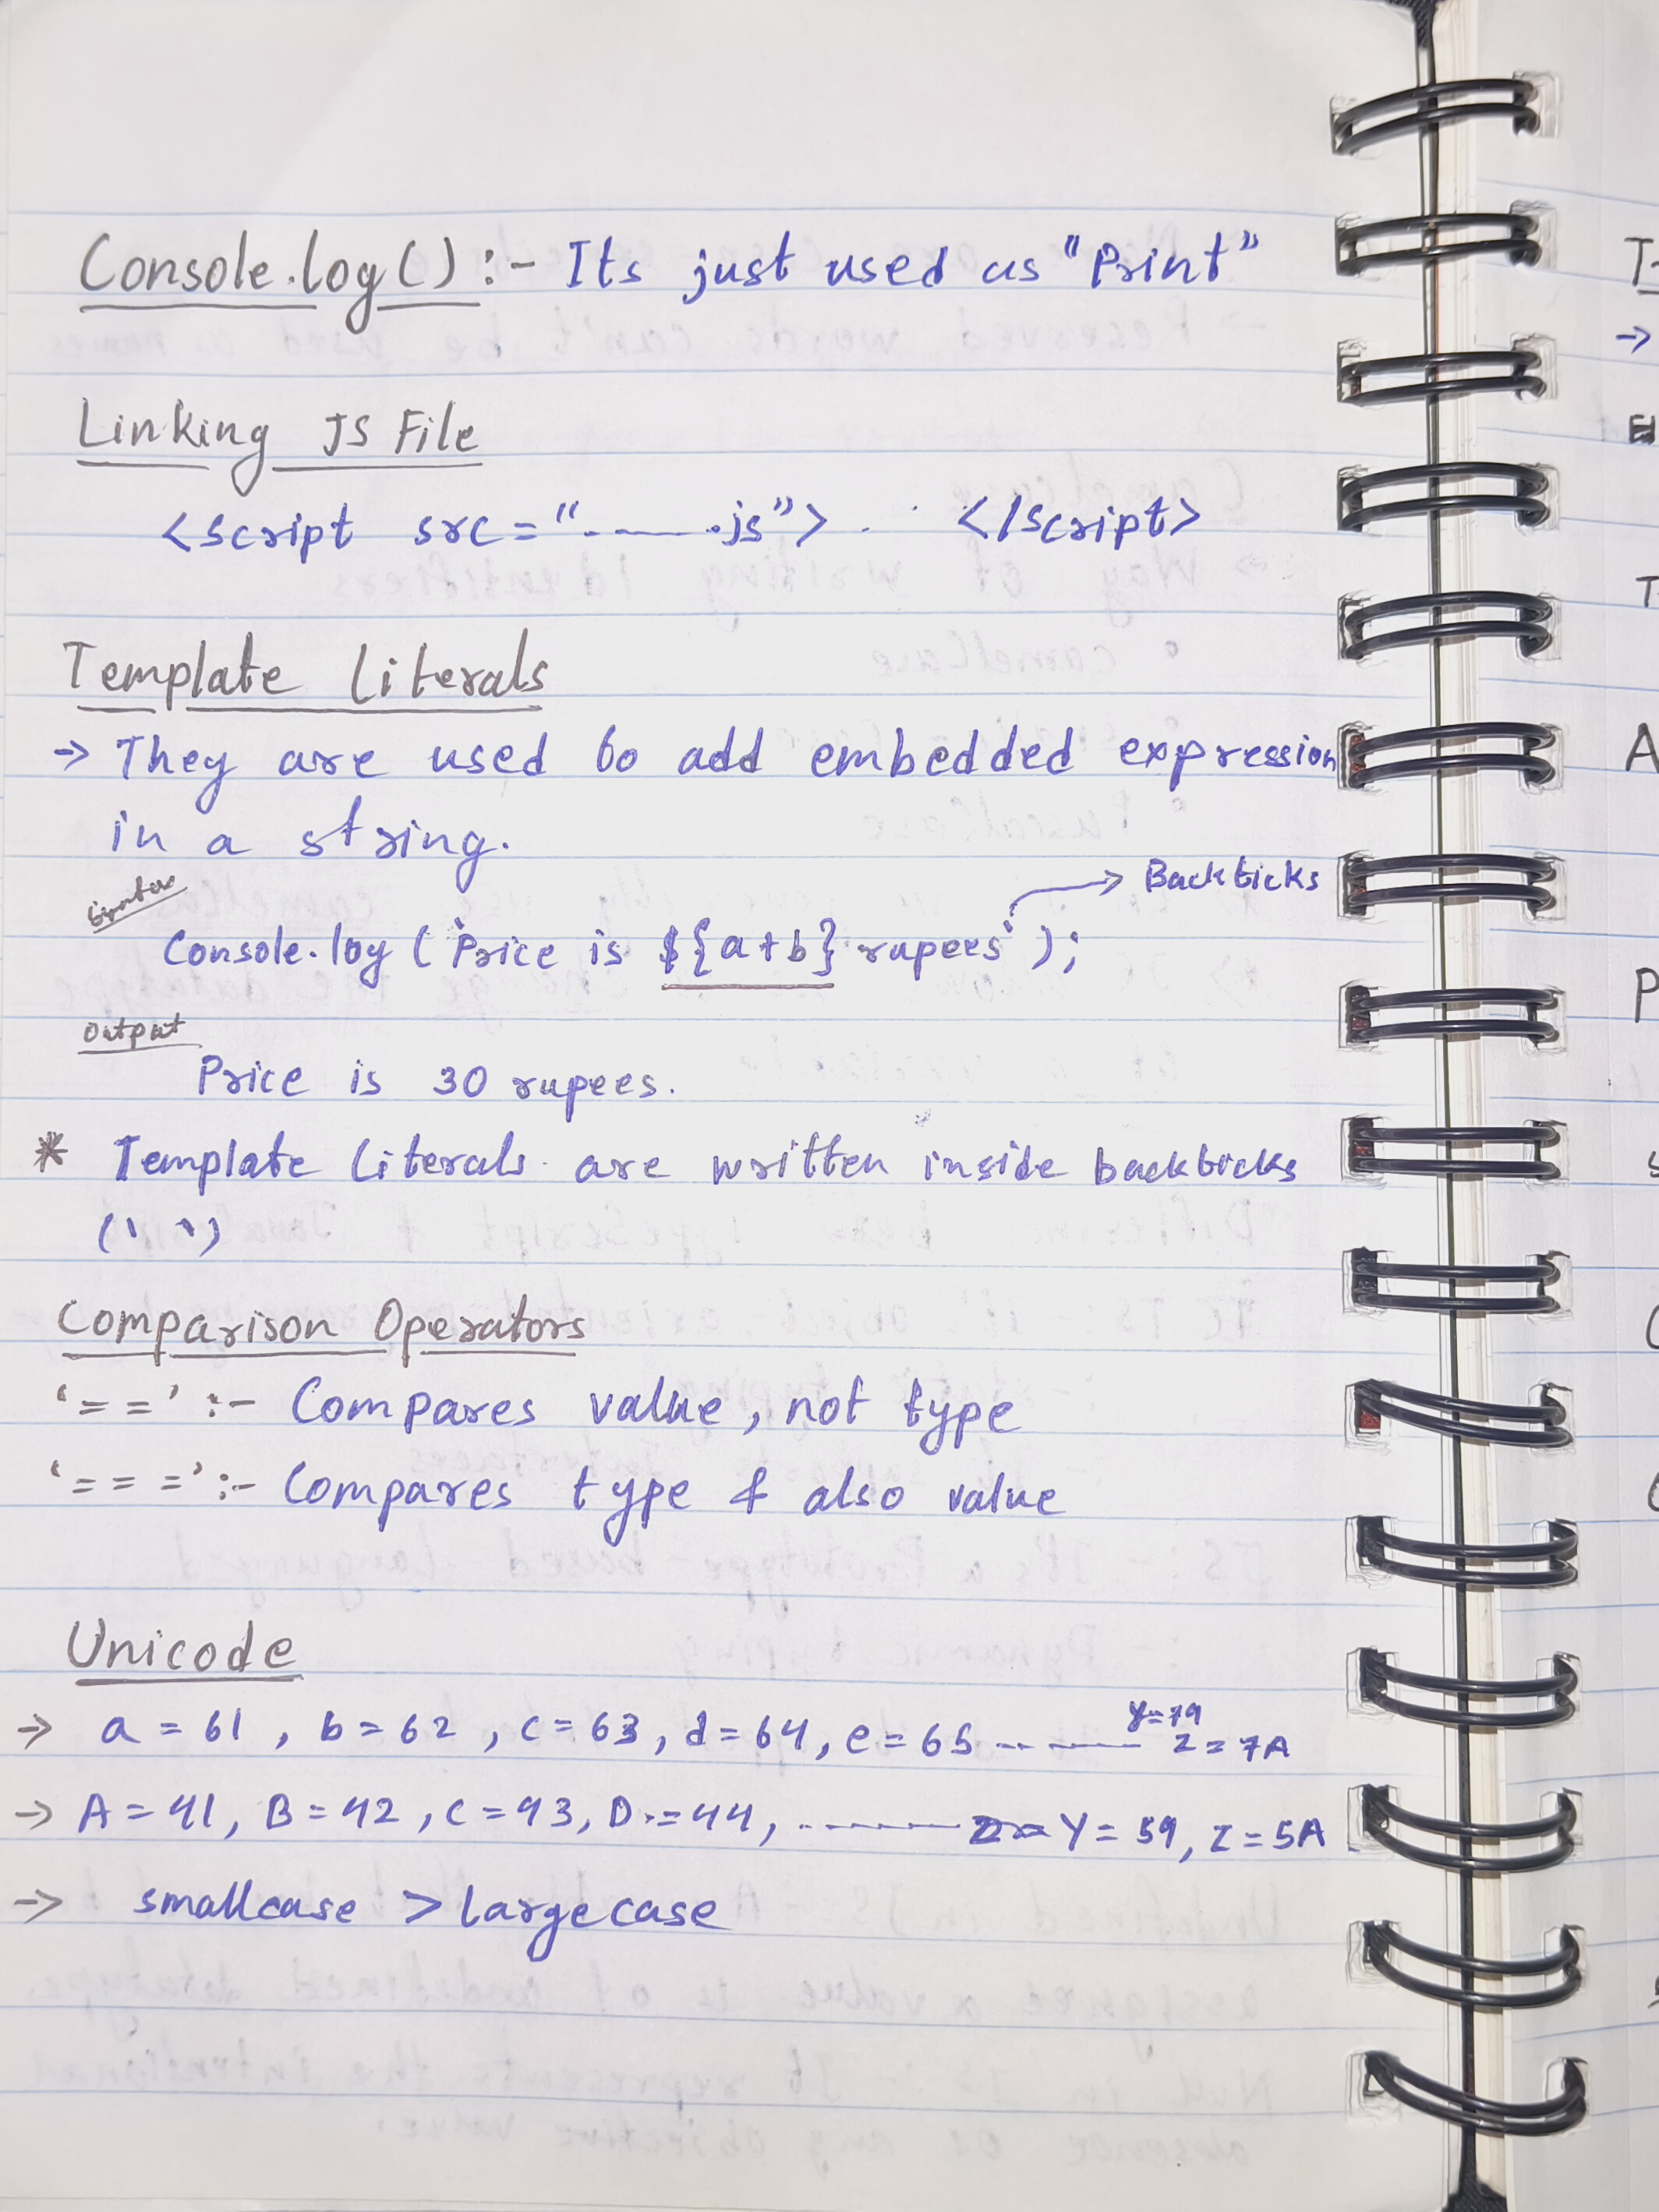 Console.log() :- Its just used as "Print"
Linking JS File
<script src = "-------.js"> </script>
Template Literals
→ They are used to add embedded expression
in a string.
Syntax
→ Backticks
Console.log (`Price is ${a+b} rupees`);
Output
Price is 30 rupees.
* Template Literals are written inside backticks
(` `)
Comparison Operators
'==' :- Compares value, not type
'===' :- Compares type & also value
Unicode
→ a = 61, b = 62, c = 63, d = 64, e = 65 ------- y = 79 z = 7A
→ A = 41, B = 42, C = 43, D = 44, ------- Y = 59, Z = 5A
→ smallcase > largecase